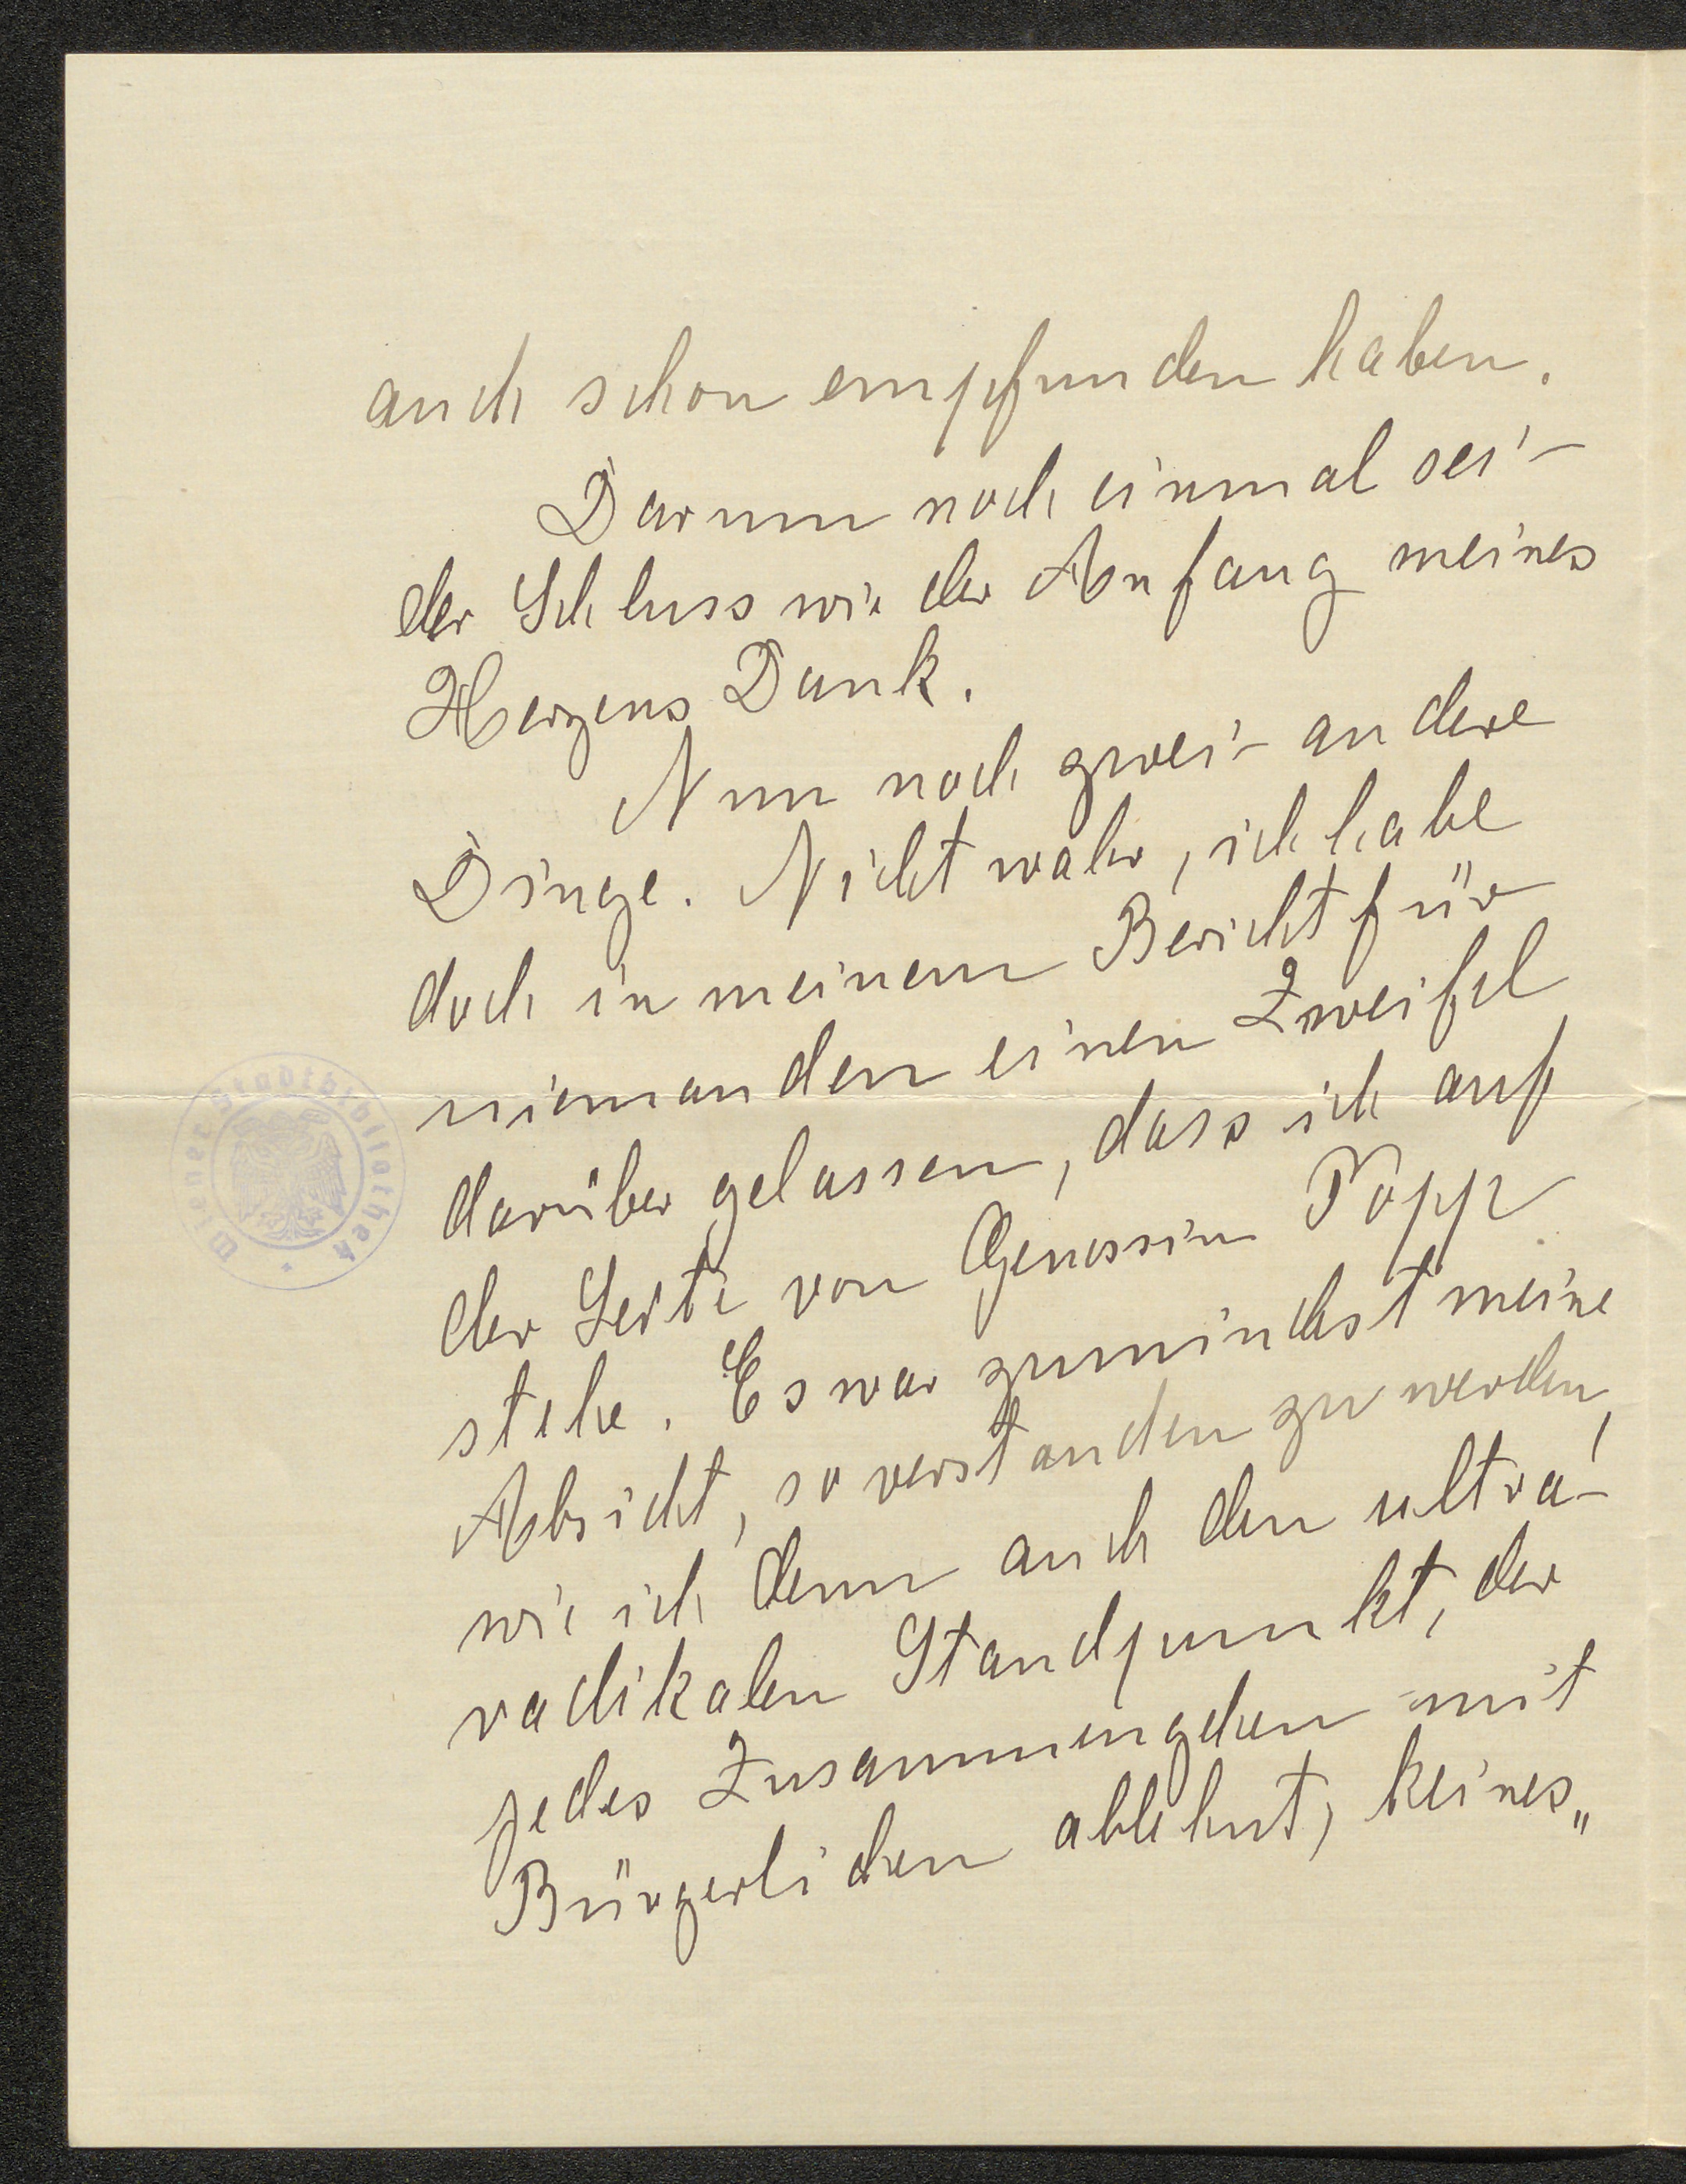 auch schon empfunden haben.
Darum noch einmal sei
der Schluss wie der Anfang meines
Herzens Dank.
Nun noch zwei andere
Dinge. Nicht wahr, ich habe
doch in meinem Bericht für
niemanden einen Zweifel
darüber gelassen, dass ich auf
der Seite von Genossin Popp
stehe. Es war zumindest meine
Absicht, so verstanden zu werden,
wie ich denn auch den ultra-
radikalen Standpunkt, der
jedes Zusammengehen mit
Bürgerlichen ablehnt, keines„
Wiener Stadtbibliothek